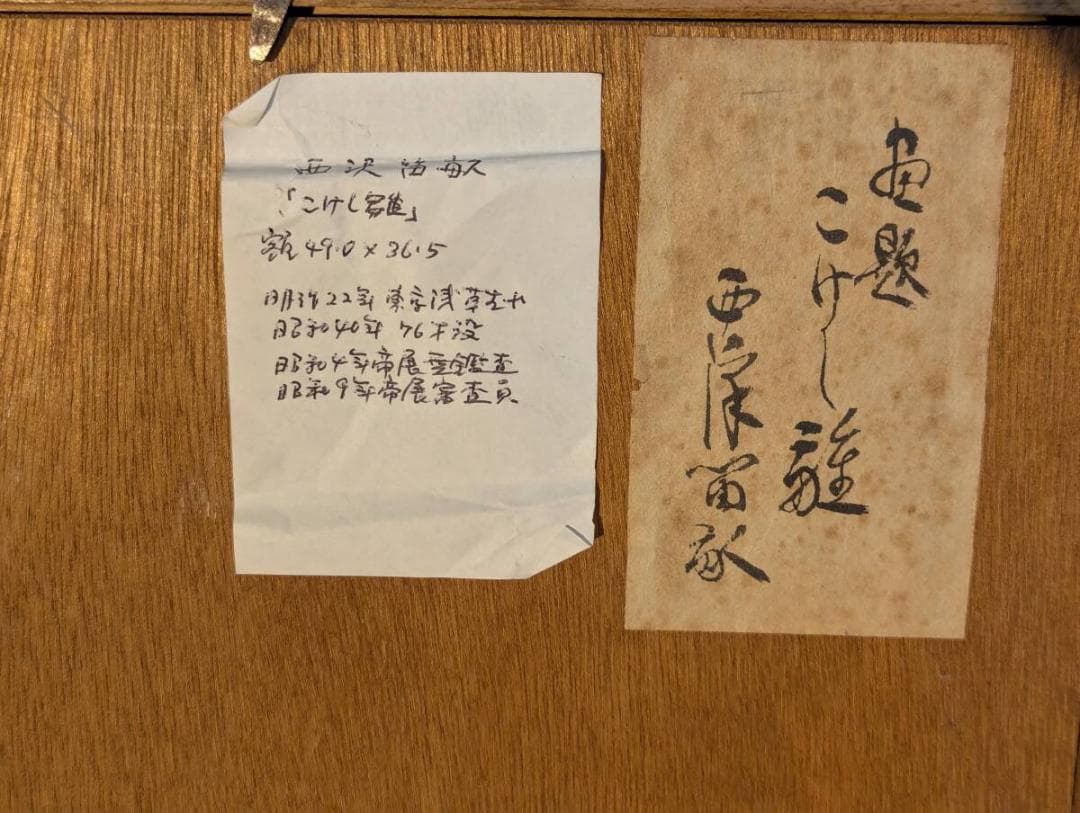 西沢笛畝
「こけし雛」
額 49.0×36.5
明治22年 東京浅草生れ
昭和40年 76才没
昭和4年帝展無鑑査
昭和9年帝展審査員
画題
こけし雛
西澤笛畝